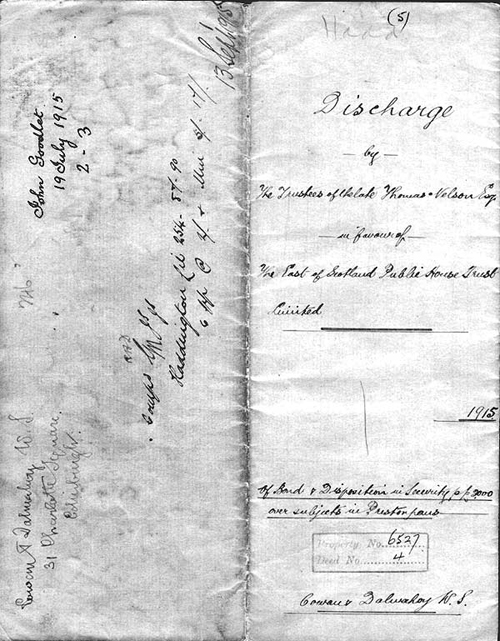 (5)
Hadd
Discharge
by
The Trustees of the late Thomas Nelson Esq.
in favour of
The East of Scotland Public House Trust
Limited
1915
Of Bond & Disposition in Security p £3000
over subjects in Prestonpans
Property No. 6527
Deed No. 4
Cowan & Dalmahoy W.S.
13 Sept
John Goodlet
19 July 1915
2-3
Haddington
Cowan & Dalmahoy W.S.
31 Charlotte Square,
Edinburgh.